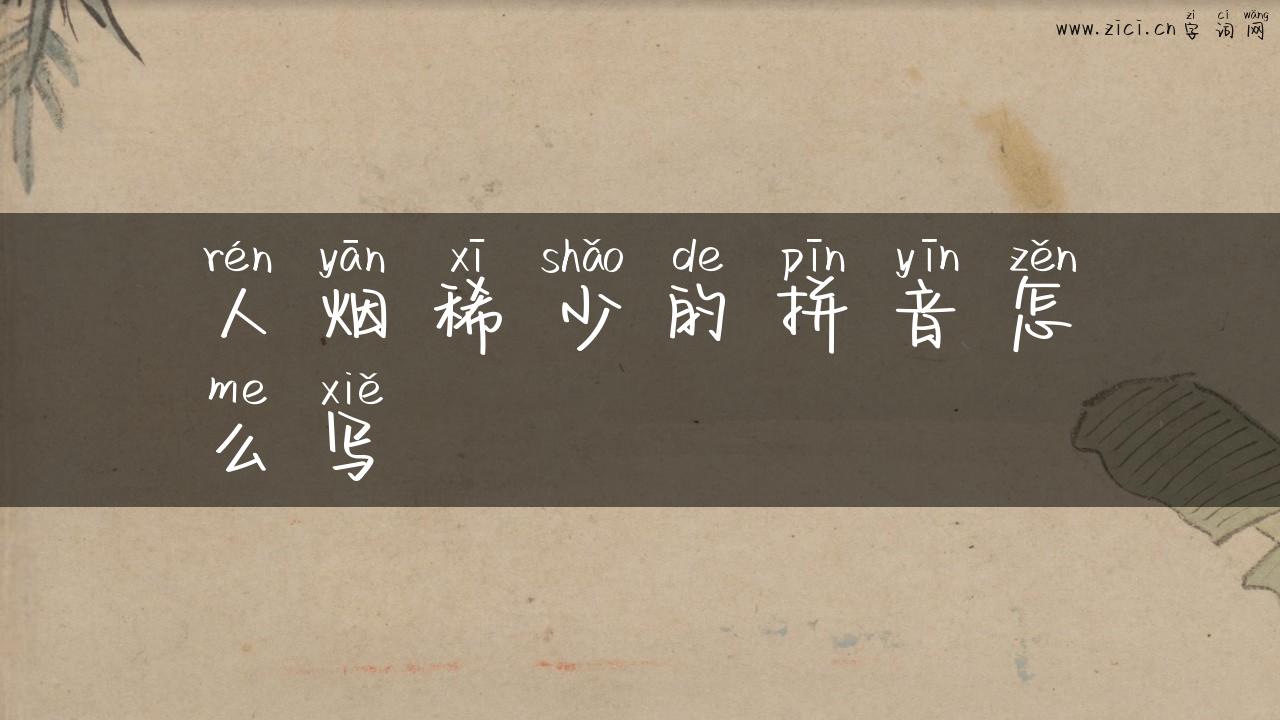 zì cí wǎng
www.zici.cn 字词网
rén yān xī shǎo de pīn yīn zěn
人烟稀少的拼音怎
me xiě
么写